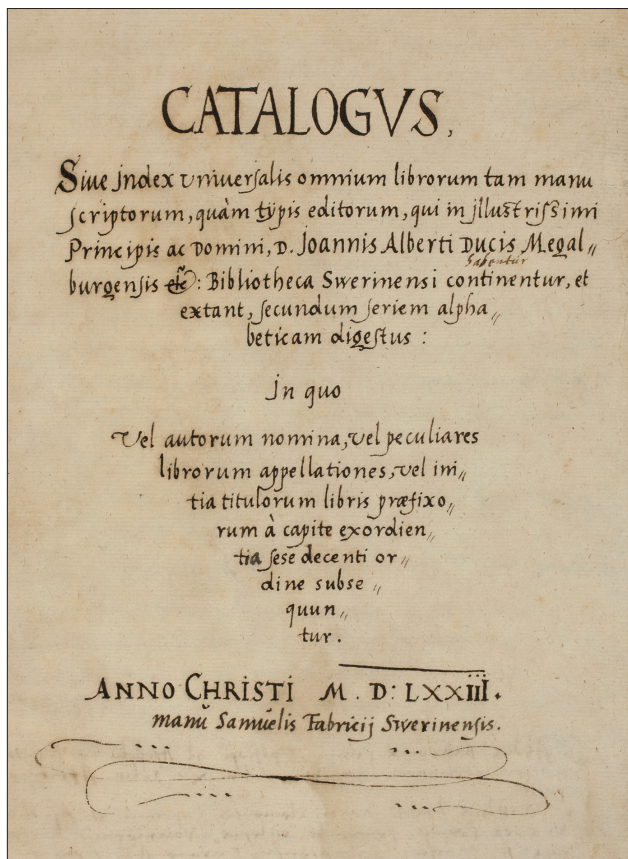 CATALOGVS,
Siue Jndex vniuersalis omnium librorum tam manu
scriptorum, quàm typis editorum, qui in jllustrissimi
Principis ac Domini, D. Joannis Alberti Ducis Megal〃
habentur
burgensis etc: Bibliotheca Swerinensi continentur, et
extant, secundum seriem alpha〃
beticam digestus :
Jn quo
Vel autorum nomina, vel peculiares
librorum appellationes, vel ini〃
tia titulorum libris præfixo〃
rum à capite exordien〃
tia sese decenti or〃
dine subse〃
quun〃
tur.
ANNO CHRISTI M. D: LXXIII.
manu Samuelis Fabricij Swerinensis.